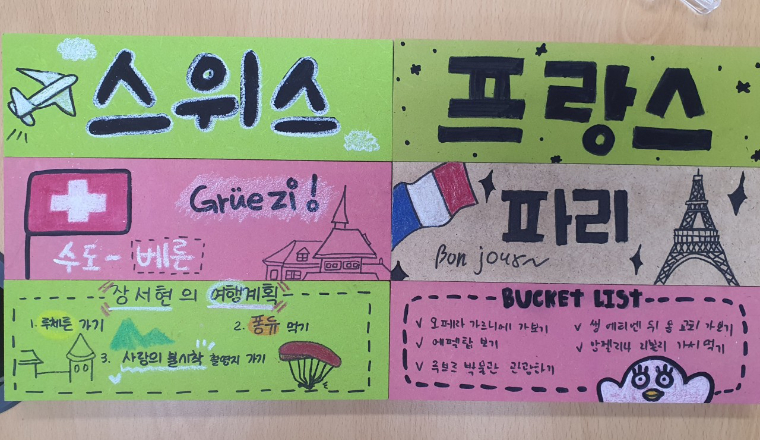 스위스
Grüezi!
수도~ 베른
장서현의 여행계획
1. 루체른 가기
2. 퐁듀 먹기
3. 사랑의 불시착 촬영지 가기
프랑스
파리
Bon jour~
BUCKET LIST
✓ 오페라 가르니에 가보기
✓ 에펠탑 보기
✓ 루브르 박물관 관광하기
✓ 생 에티엔 뒤 몽 교회 가보기
✓ 안젤리나 리볼리 가서 먹기